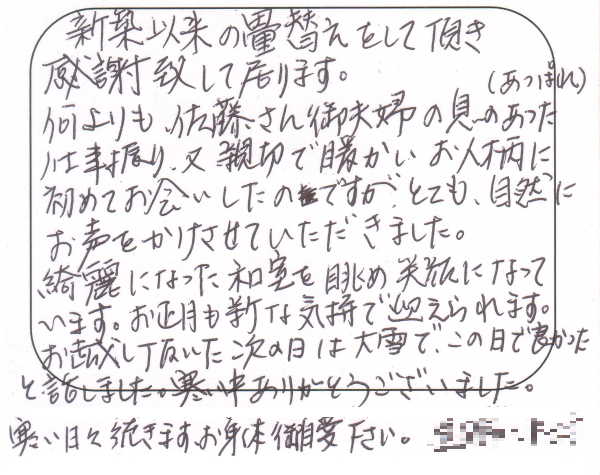 新築以来の畳替えをして頂き
感謝致して居ります。
(あっぱれ)
何よりも、佐藤さん御夫婦の息のあった
仕事振り、又親切で暖かいお人柄に
初めてお会いしたのですが、とても、自然に
お声をかけさせていただきました。
綺麗になった和室を眺め笑顔になって
います。お正月も新な気持で迎えられます。
お越し頂いた次の日は大雪で、この日で良かった
と話しました。寒い中ありがとうございました。
寒い日々続きます、お身体御自愛下さい。